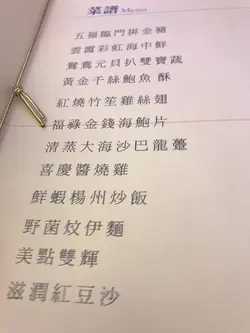 菜譜 Menu
五福臨門拼金豬
雲霞彩虹海中鮮
鴛鴦元貝扒雙寶蔬
黃金千絲鮑魚酥
紅燒竹笙雞絲翅
福祿金錢海鮑片
清蒸大海沙巴龍躉
喜慶醬燒雞
鮮蝦楊州炒飯
野菌炆伊麵
美點雙輝
滋潤紅豆沙